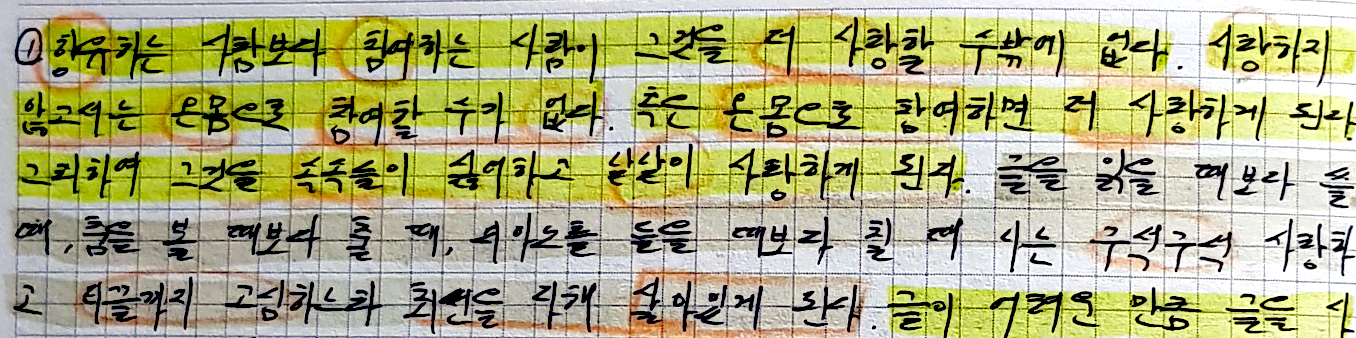 ① 향유하는 사람보다 참여하는 사람이 그것을 더 사랑할 수밖에 없다. 사랑하지
않고서는 온몸으로 참여할 수가 없다. 혹은 온몸으로 참여하면 더 사랑하게 된다
그리하여 그것을 속속들이 싫어하고 낱낱이 사랑하게 된다. 글을 읽을 때보다 쓸
때, 춤을 볼 때보다 출 때, 피아노를 들을 때보다 칠 때 나는 구석구석 사랑하
고 티끌까지 고심하느라 최선을 다해 살아있게 된다. 글이 어려운 만큼 글을 사